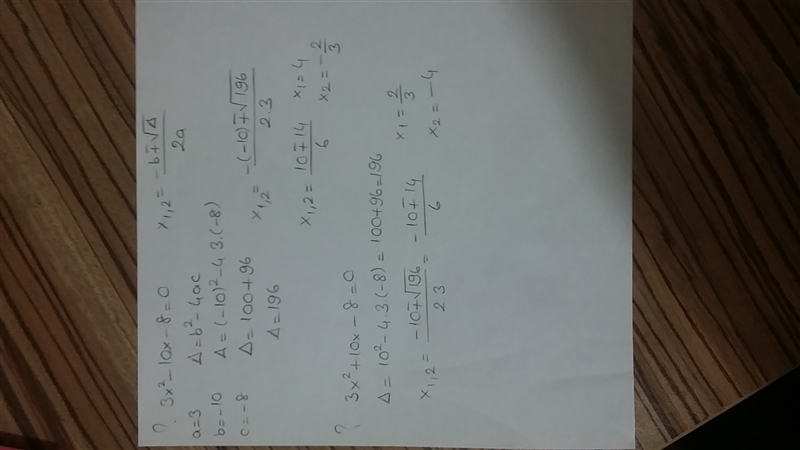 ? 3x² - 10x - 8 = 0
x₁,₂ = (-b ∓ √Δ) / 2a
a = 3 Δ = b² - 4ac
b = -10 Δ = (-10)² - 4 3.(-8)
c = -8 Δ = 100 + 96
Δ = 196
x₁,₂ = (-(-10) ∓ √196) / 2.3
x₁,₂ = (10 ∓ 14) / 6 x₁ = 4
x₂ = -2/3
? 3x² + 10x - 8 = 0
Δ = 10² - 4.3.(-8) = 100 + 96 = 196
x₁,₂ = (-10 ∓ √196) / 2 3 = (-10 ∓ 14) / 6 x₁ = 2/3
x₂ = -4